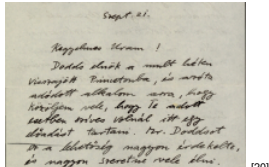 Szept. 21.
Kegyelmes Uram!
Dodds elnök a mult héten
visszajött Princetonba, és azóta
adódott alkalom arra, hogy
közöljem vele, hogy Te adott
esetben szives volnál itt egy
előadást tartani. Mr. Doddsot
ez a lehetőség nagyon érdekelte,
és nagyon szeretne vele élni.
[20]